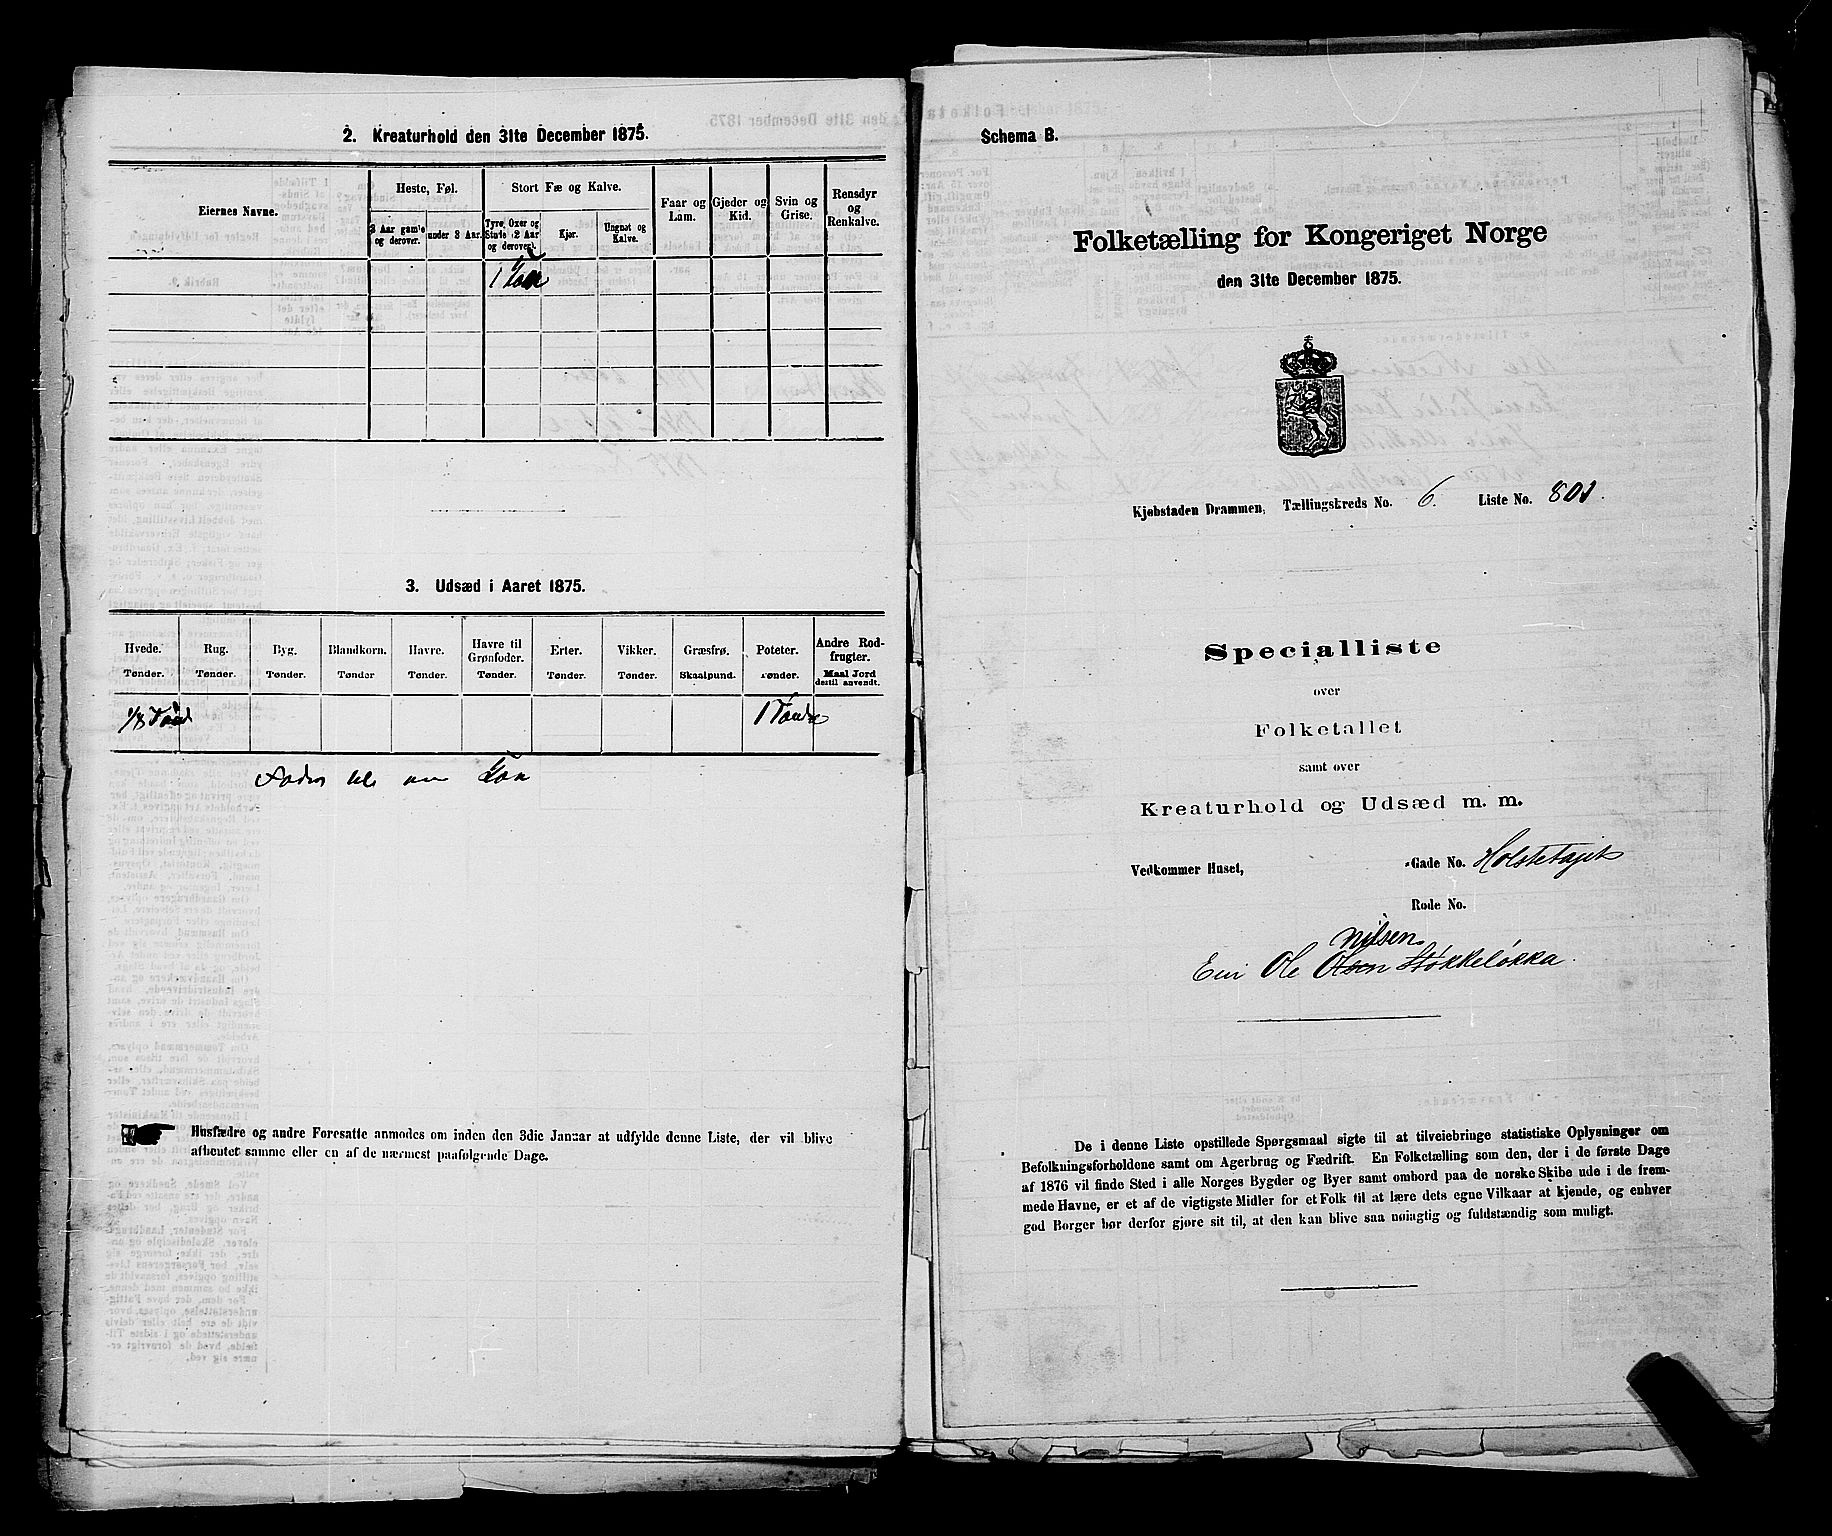 2. Kreaturhold den 31te December 1875.
Eiernes Navne.
Heste, Føl.
Stort Fæ og Kalve.
Faar og Lam.
Gjeder og Kid.
Svin og Grise.
Rensdyr og Renkalve.
3 Aar gamle og derover.
under 3 Aar.
Tyre, Oxer og Stude (2 Aar og derover).
Kjør.
Ungnøt og Kalve.
1 Koe
3. Udsæd i Aaret 1875.
Hvede. Rug. Byg. Blandkorn. Havre. Havre til Grønfoder. Erter. Vikker. Græsfrø. Poteter. Andre Rodfrugter.
Tønder. Tønder. Tønder. Tønder Tønder. Tønder. Tønder. Tønder. Skaalpund. Tønder. Maal Jord dertil anvendt.
1/8 Tønd 1 Tønde
Foder til en Koe
Husfædre og andre Foresatte anmodes om inden den 3die Januar at udfylde denne Liste, der vil blive
afhentet samme eller en af de nærmest paafølgende Dage.
Schema B.
Folketælling for Kongeriget Norge
den 31te December 1875.
Kjøbstaden Drammen, Tællingskreds No. 6. Liste No. 801.
Specialliste
over
Folketallet
samt over
Kreaturhold og Udsæd m. m.
Vedkommer Huset, -Gade No. Holstetajet
Rode No.
Nilsen
Eier Ole Olsen Støkkeløkka.
De i denne Liste opstillede Spørgsmaal sigte til at tilveiebringe statistiske Oplysninger om
Befolkningsforholdene samt om Agerbrug og Fædrift. En Folketælling som den, der i de første Dage
af 1876 vil finde Sted i alle Norges Bygder og Byer samt ombord paa de norske Skibe ude i de frem-
mede Havne, er et af de vigtigste Midler for et Folk til at lære dets egne Vilkaar at kjende, og enhver
god Borger bør derfor gjøre sit til, at den kan blive saa nøiagtig og fuldstændig som muligt.